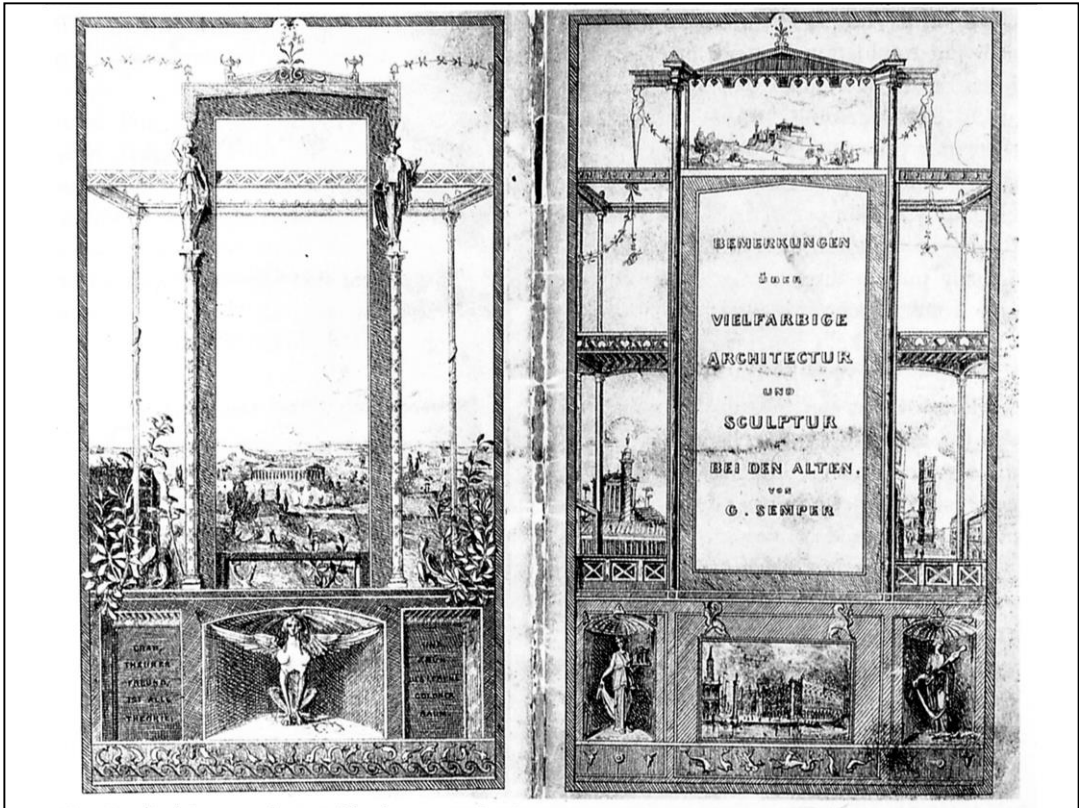 GRAU,
THEURER
FREUND,
IST ALLE
THEORIE,
UND
GRÜN
DES LEBENS
GOLDNER
BAUM.
BEMERKUNGEN
ÜBER
VIELFARBIGE
ARCHITECTUR
UND
SCULPTUR
BEI DEN ALTEN.
VON
G. SEMPER